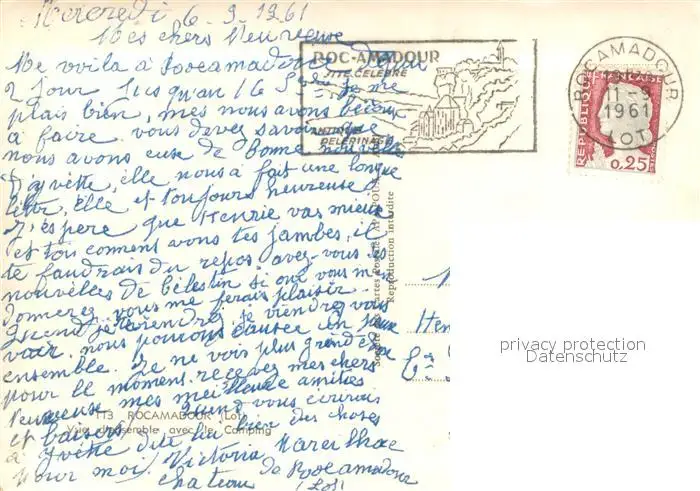 Mercredi 6-9-1961
Mes chers Neureuse
Me voila à Rocamadour depuis
2 jour Jusqu'an 16 je me
plais bien, mes nous avons
à faire vous devez savoir que
nous avons euse de Bonne nouvelle
D'yvette, elle nous à fait une longue
letre, elle et toujours heureuse
J'espere que Henrie vas mieux
et toi comment avons tes jambes, il
te faudrais du repos avez-vous
nouvelles de Célestin si on vous
donnerez vous me ferais plaisir
je viendrez vous
voir, nous pouvons causer un peux
ensemble. Je ne vois plus grand
pour le moment recevez mes chers
mes meilleure amities
et baisers Quand vous écrivais
à yvette dite lui bien des choses
pour moi Victoria
chateau de Rocamadour
(Lot)
ROC-AMADOUR
SITE CELEBRE
ANTIQUE
PELERINAGE
ROCAMADOUR
11-9
1961
LOT
REPUBLIQUE FRANÇAISE
0,25
Reproduction interdite
113 ROCAMADOUR (Lot)
Vue d'ensemble avec le Camping
privacy protection
Datenschutz